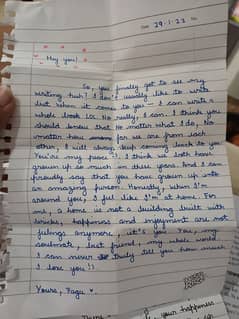 Date 29.1.23
Hey you!
So, you finally get to see my
writing huh? I don't usually like to write
but when it comes to you - I can write a
whole book LOL No really, I can. I think you
should know that No matter what I do, No
matter how far we are from each
other, I will always keep coming back to you
You're my peace!! I think we both have
grown up so much in these years. And I can
proudly say that you have grown up into
an amazing person. Honestly, when I'm
around you, I feel like I'm at home. For
me, a home is not a building built with
bricks, happiness and enjoyment are not
feelings anymore it's you. You, my
soulmate, best friend, my whole world
I can never truly tell you how much
I love you!!
Yours,
your happiness